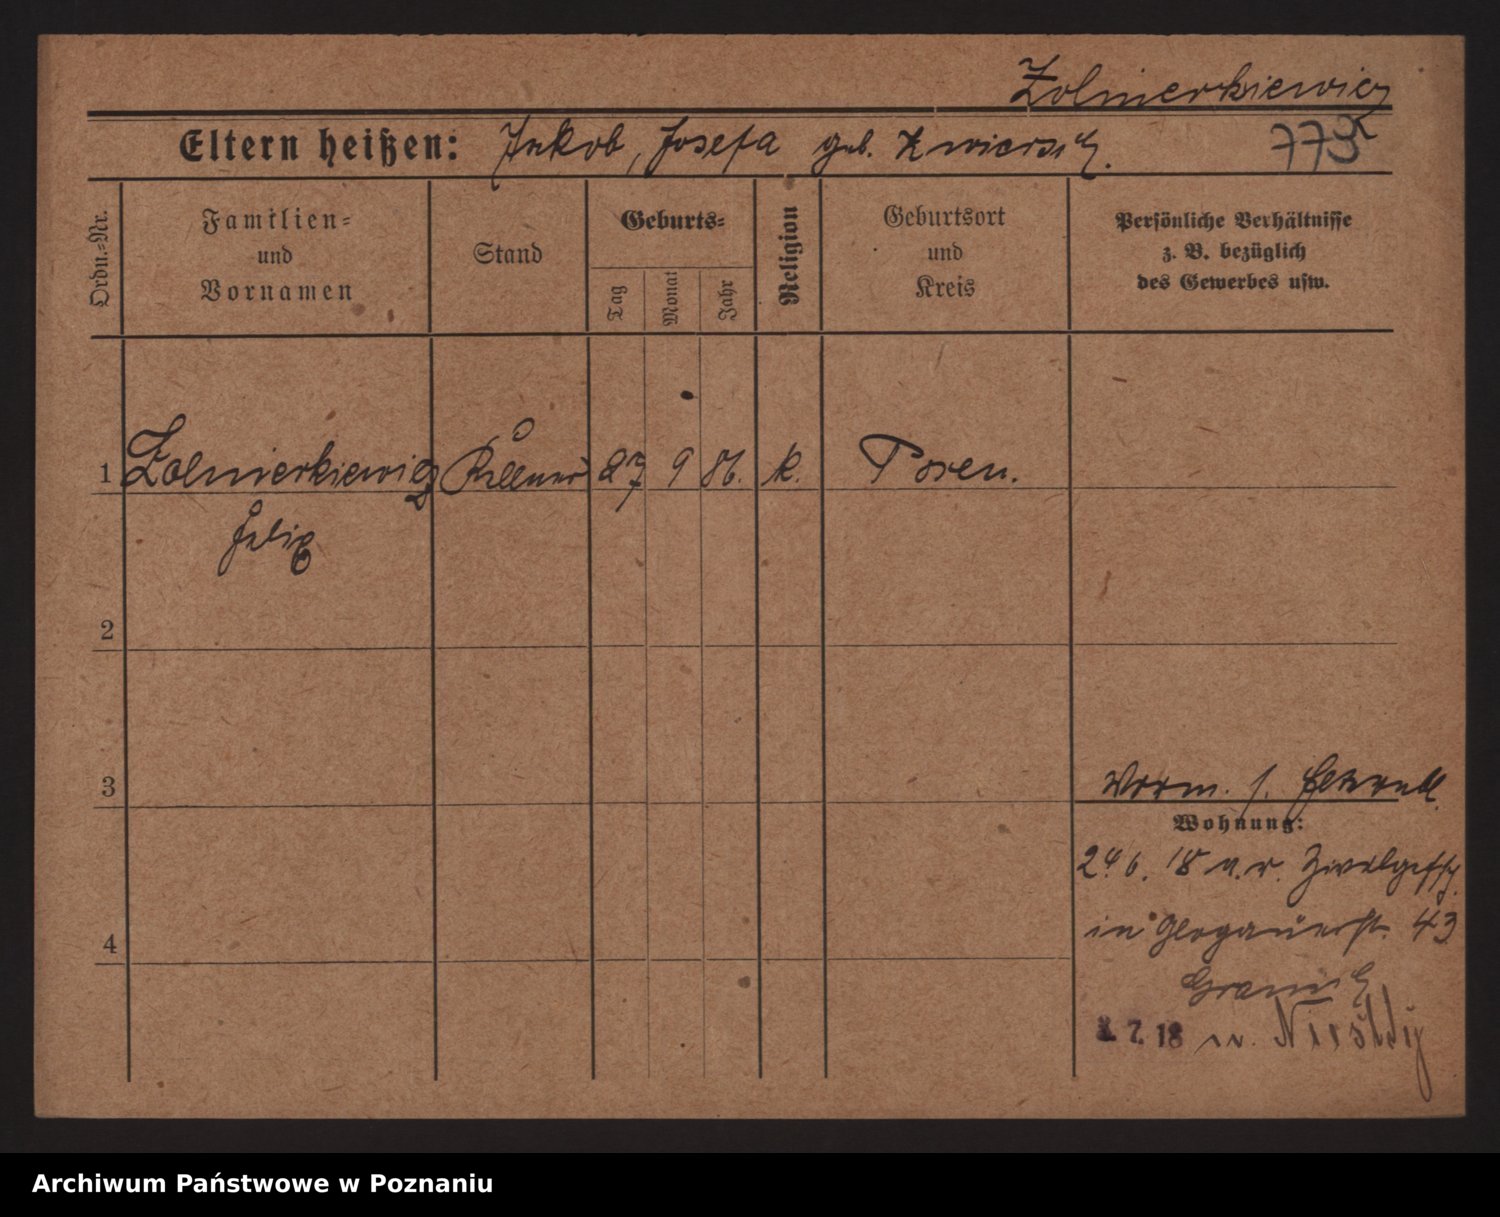 Zolnierkiewicz
Eltern heißen: Jakob, Josefa geb. Kwiersz.
773
Ordn.=Nr.
Familien=
und
Vornamen
Stand
Geburts=
Tag
Monat
Jahr
Religion
Geburtsort
und
Kreis
Persönliche Verhältnisse
z. B. bezüglich
des Gewerbes usw.
1 Zolnierkiewicz Kellner 27 9 86. k. Posen.
Felix
2
3
Worm. s.
Wohnung:
24 6. 18 n. v.
in Glogauerst. 43
4
7. 18 n.
Archiwum Państwowe w Poznaniu